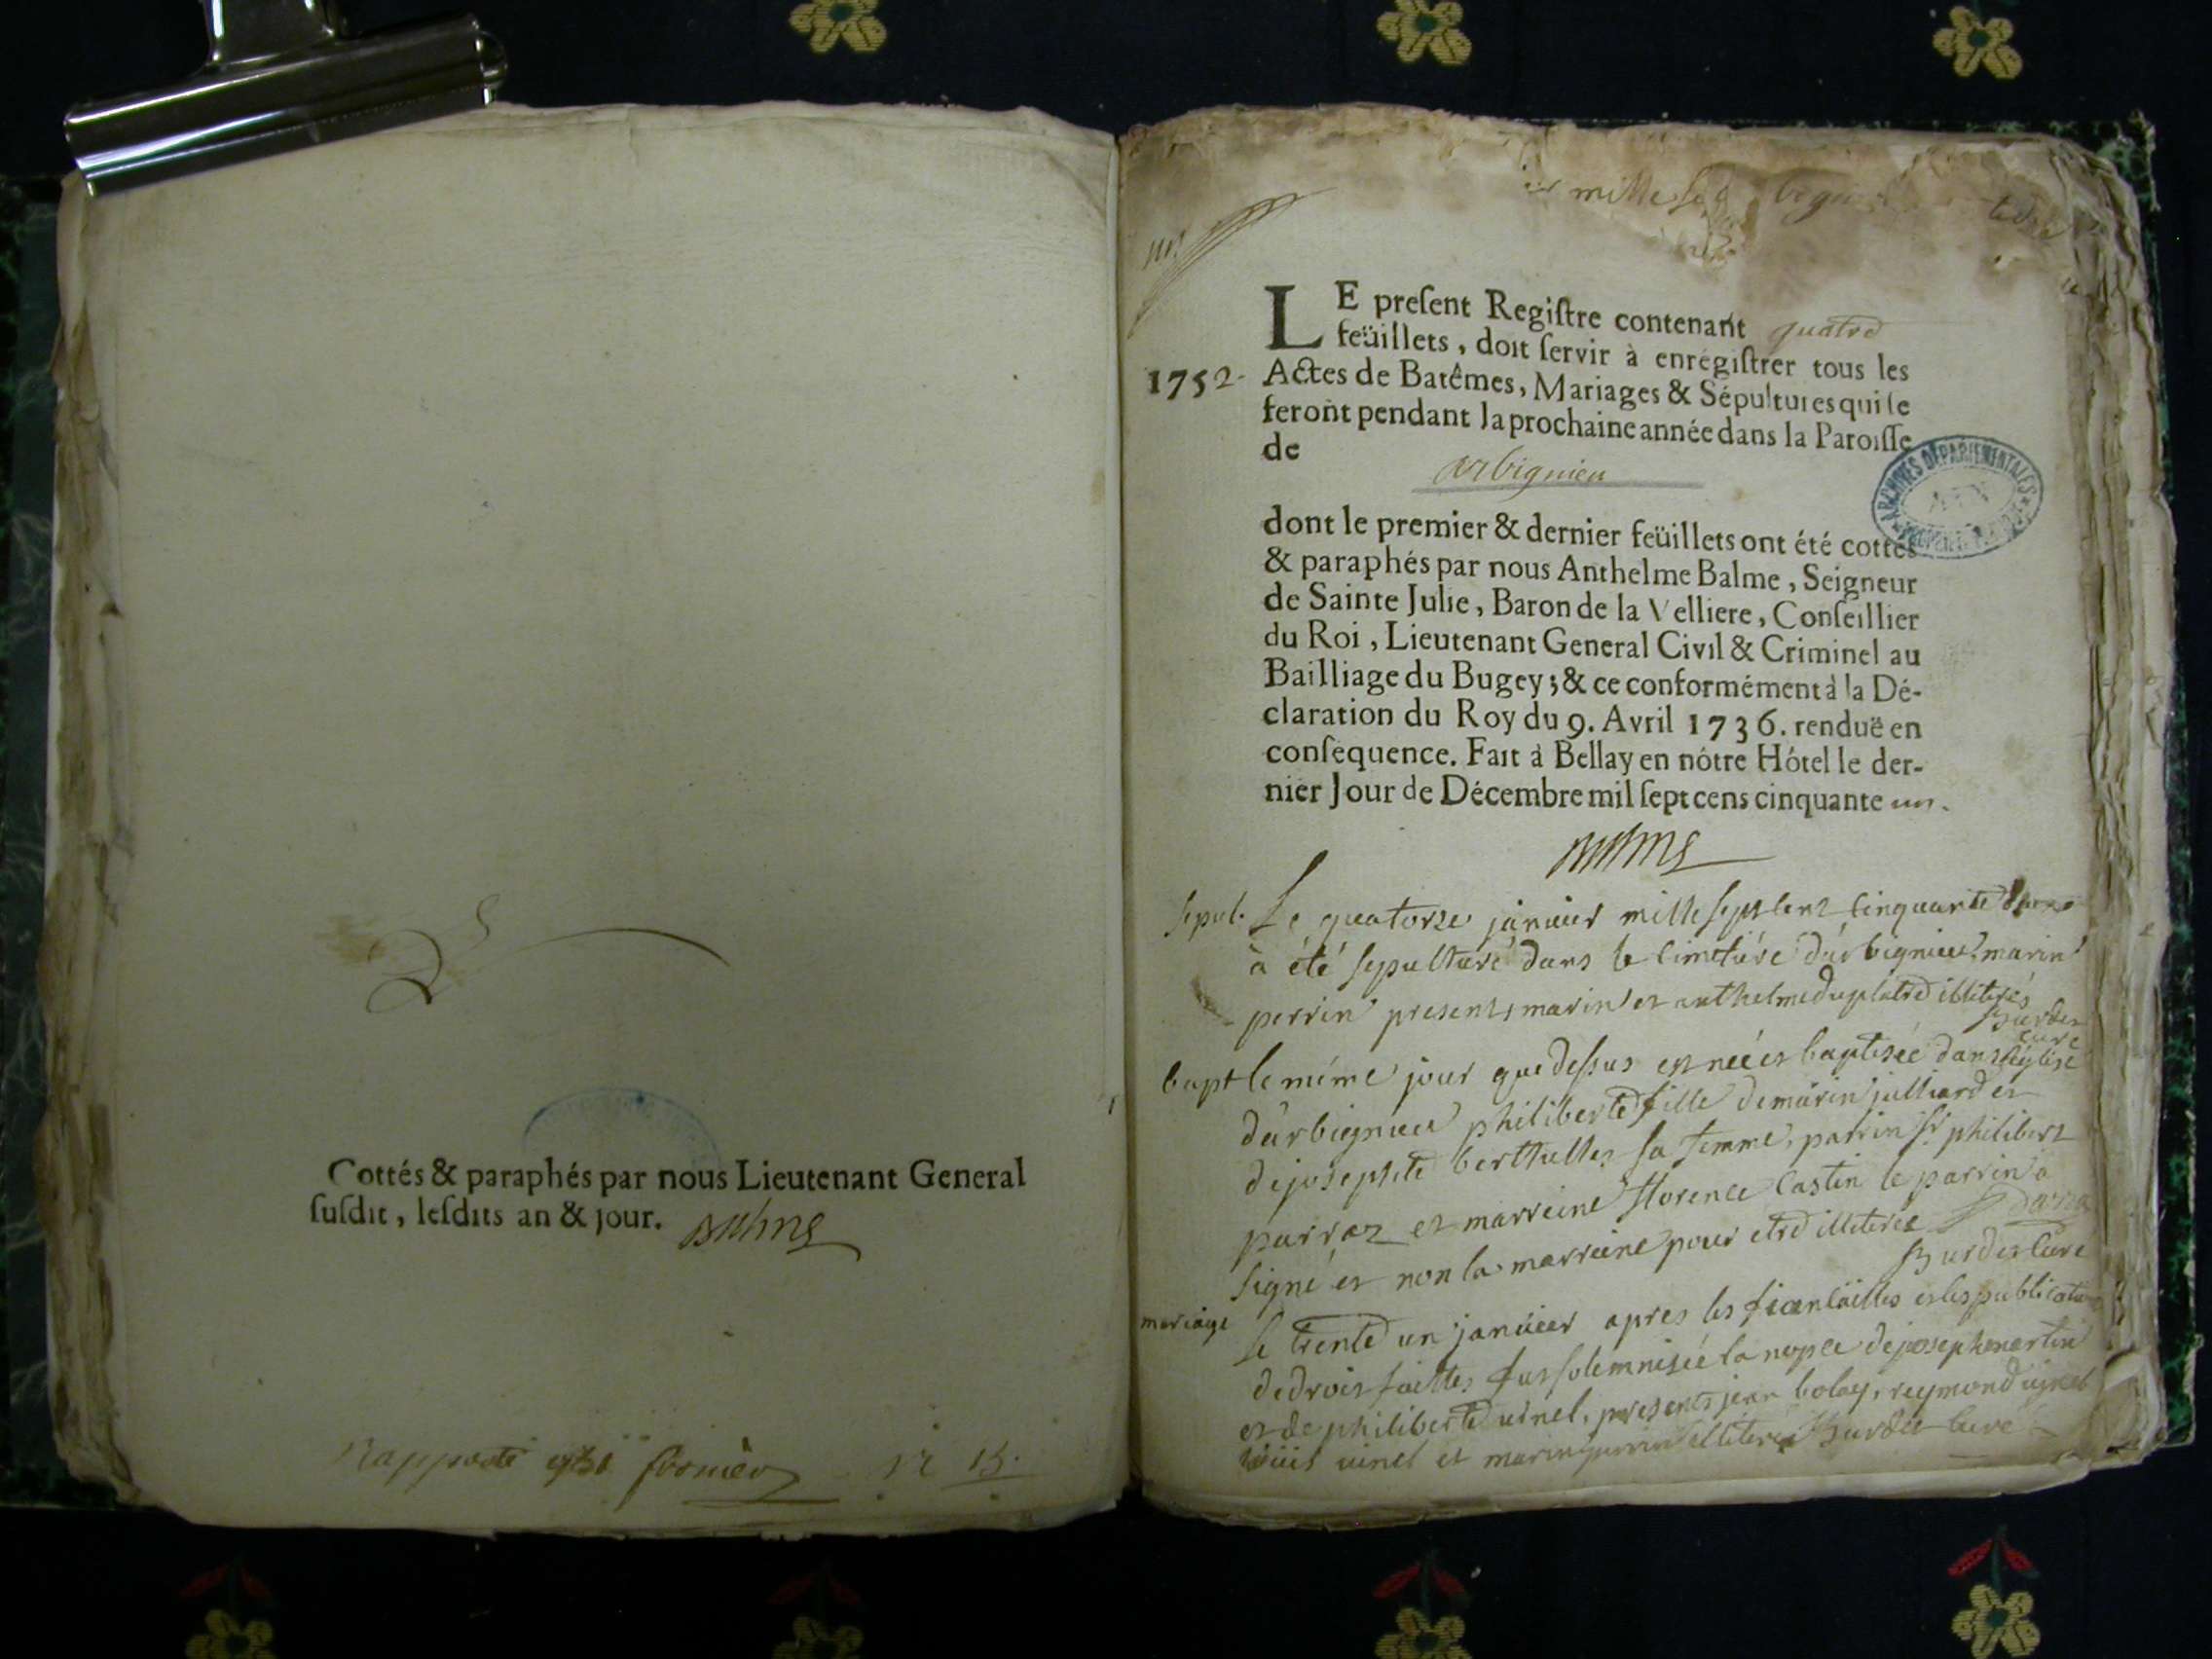 Cottés & paraphés par nous Lieutenant General
ſuſdit, leſdits an & jour.
Rapporté
LE preſent Regiſtre contenant quatre
feüillets, doit ſervir à enrégiſtrer tous les
1752. Actes de Batêmes, Mariages & Sépultures qui ſe
feront pendant la prochaine année dans la Paroiſſe
de
arbignieu
ARCHIVES DÉPARTEMENTALES
AIN
dont le premier & dernier feüillets ont été cottés
& paraphés par nous Anthelme Balme, Seigneur
de Sainte Julie, Baron de la Velliere, Conſeillier
du Roi, Lieutenant General Civil & Criminel au
Bailliage du Bugey; & ce conformément à la Dé-
claration du Roy du 9. Avril 1736. renduë en
conſéquence. Fait à Bellay en nôtre Hôtel le der-
nier Jour de Décembre mil ſept cens cinquante un.
Balme
sepul. Le quatorze janvier mille sept cent cinquante deux
à été sepulturé dans le cimetiére d'arbignieu marin
perrin presents marin et anthelme duplatre illiterés
Burdet
curé
bapt le méme jour que dessus est neé et baptisée dans l'église
d'arbignieu philiberte fille de marin julliard et
de josephte berthelles sa femme, parrin sr philibert
parraz et marreine florence Castin le parrin à
signé et non la marreine pour etre illiterée
Burdet Curé
mariage le trente un janvier apres les fiancailles et les publications
de droit faittes fut solemnisée la nopce de joseph martin
et de philiberte vinel, presents jean bolay, reymond vinel
loüis vinel et marin perrin illiterés Burdet Curé